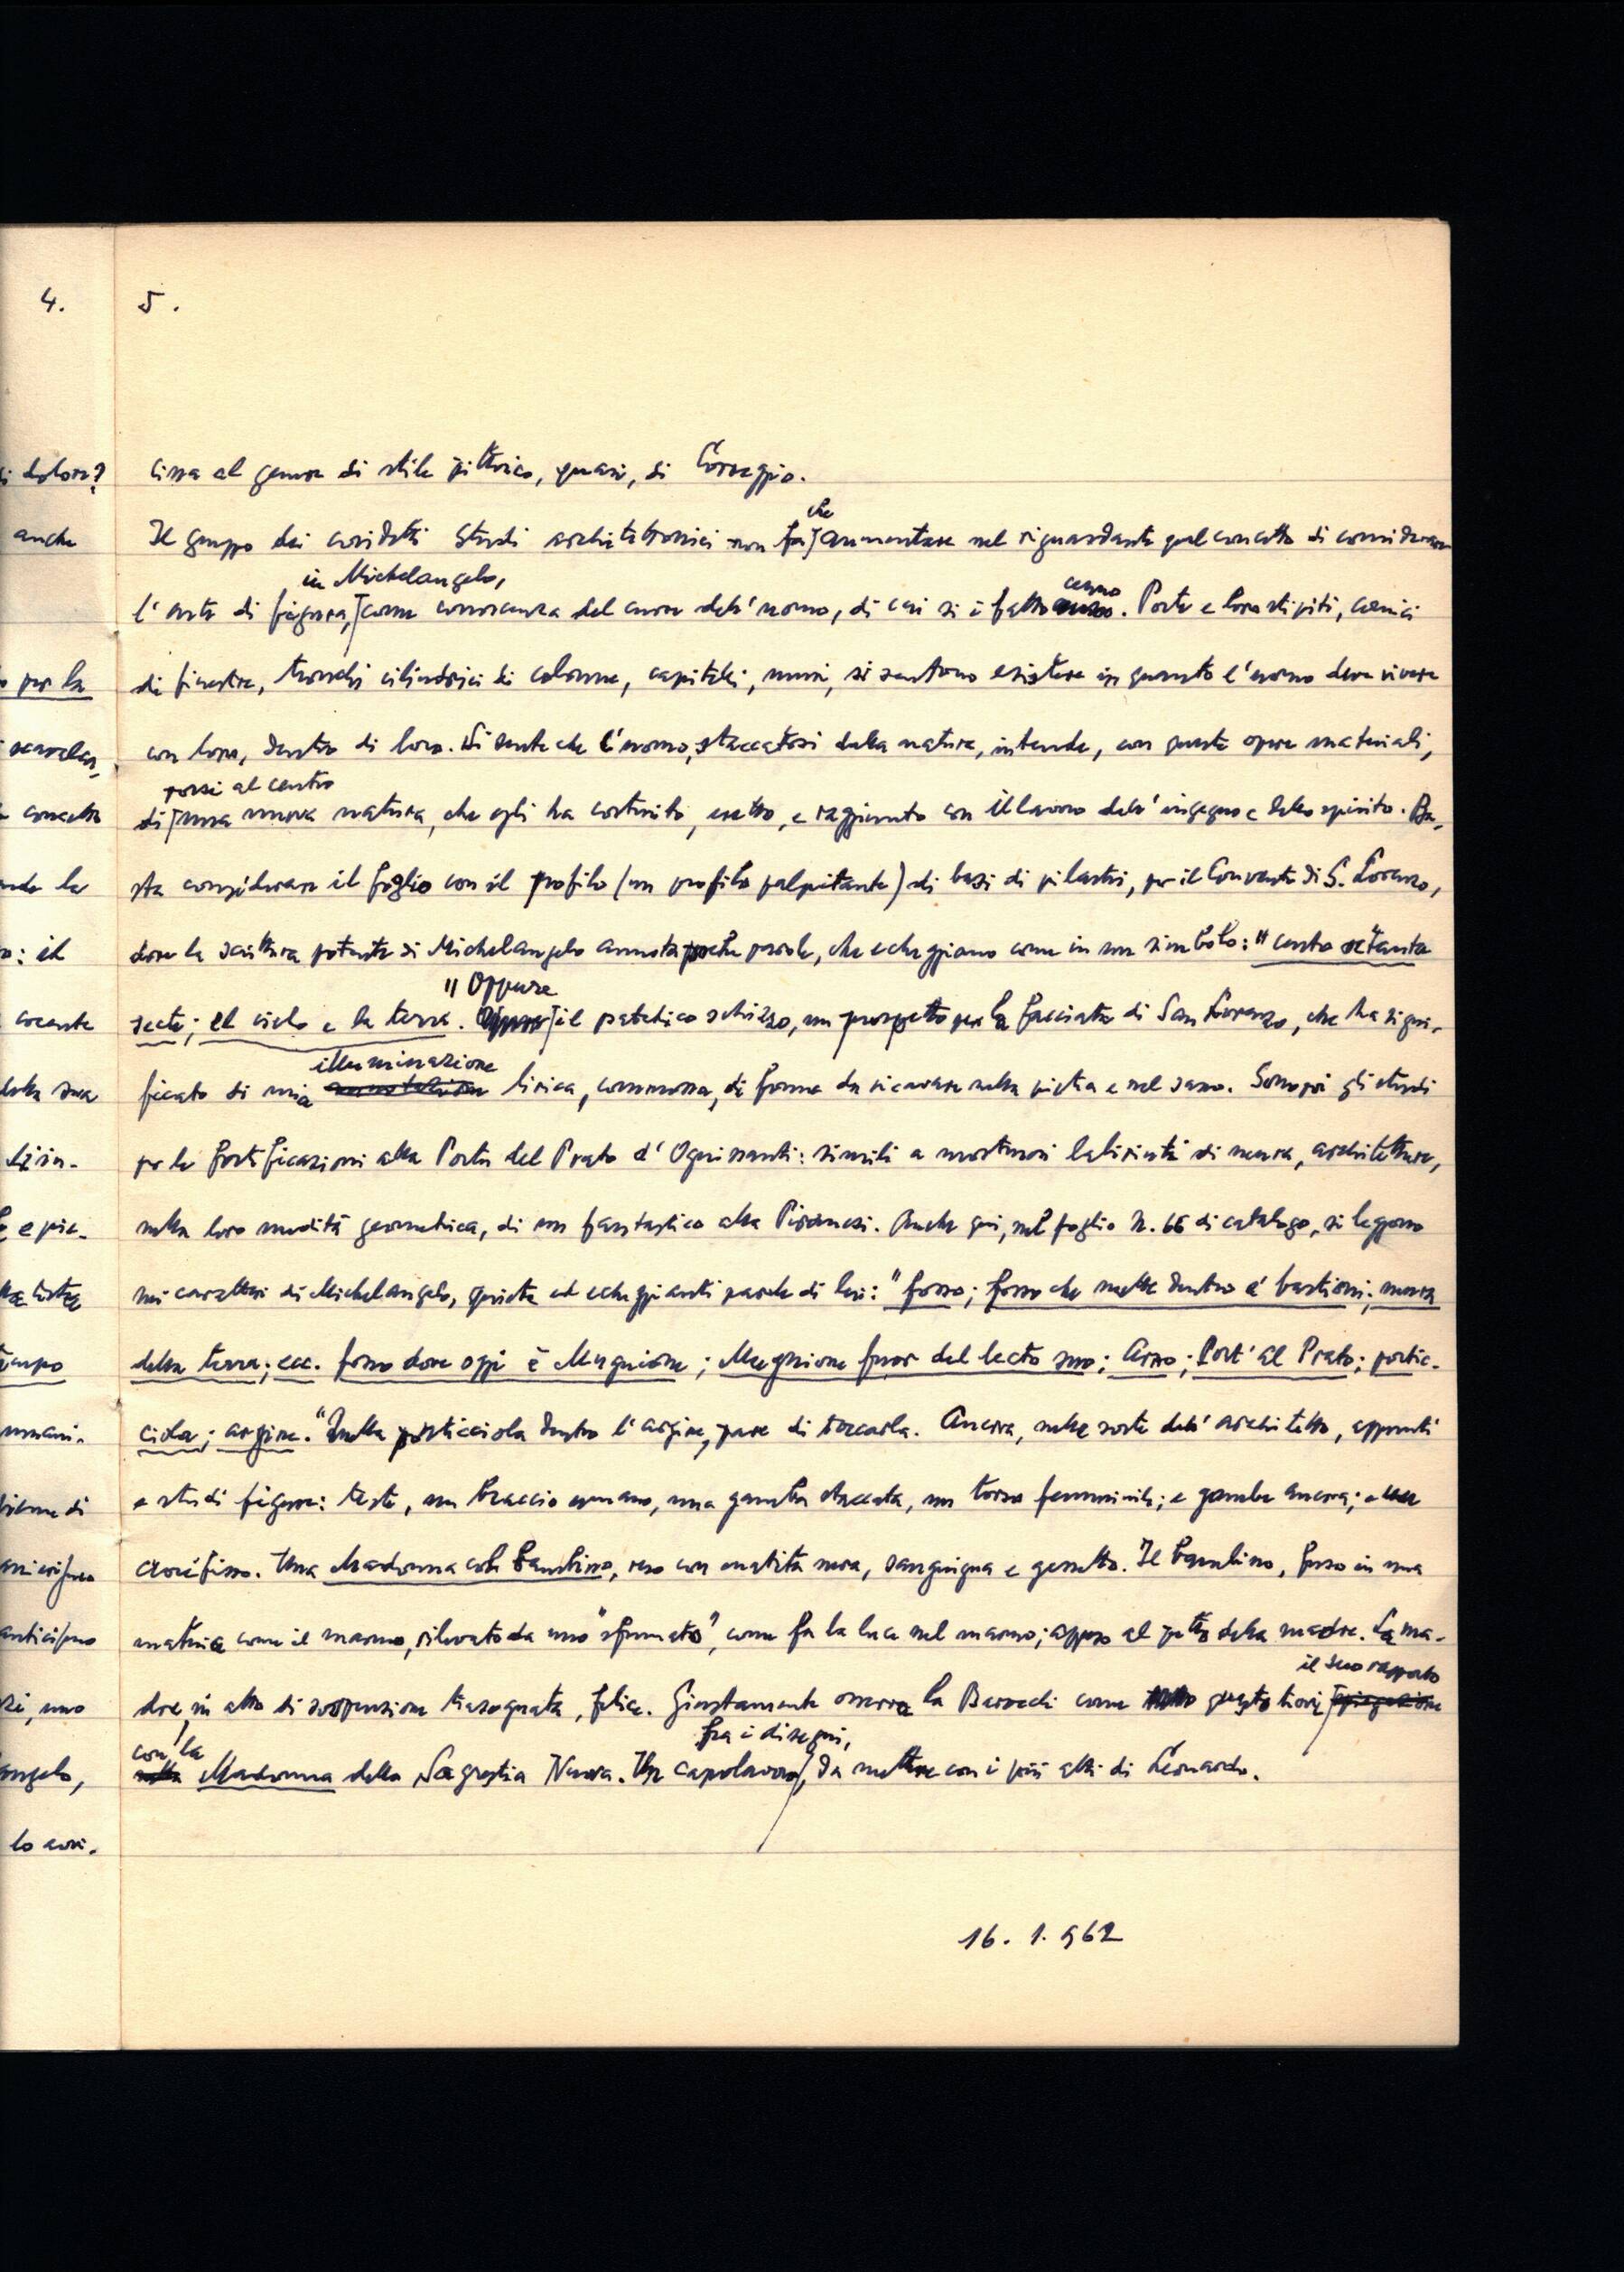 4.
5.
i dolore?
anche
per la
scavalca-
concetto
nde la
o: il
cocente
della sua
disin-
e pie-
tempo
umani-
sieme di
anticipano
zi, uno
angelo,
lo cori-
cissa al genere di stile pittorico, quasi, di Correggio.
Il gruppo dei cosidetti studi architettonici non fa che aumentare nel riguardante quel concetto di considerare
l'arte di figura, in Michelangelo, come conoscenza del cuore dell'uomo, di cui si è fatto cenno. Porte e loro stipiti, cornici
di finestre, tronchi cilindrici di colonne, capitelli, muri, si sentono esistere in quanto l'uomo deve vivere
con loro, dentro di loro. Si sente che l'uomo, staccatosi dalla natura, intende, con queste opere materiali,
di porsi al centro una nuova natura, che egli ha costruito, eretto, e raggiunto con il lavoro dell'ingegno e dello spirito. Ba-
sta considerare il foglio con il profilo (un profilo palpitante) di basi di pilastri, per il Convento di S. Lorenzo,
dove la scrittura potente di Michelangelo annota poche parole, che echeggiano come in un simbolo: "cento setanta
secte; el cielo e la terra." Oppure il patetico schizzo, un prospetto per la facciata di San Lorenzo, che ha signi-
ficato di una illuminazione lirica, commossa, di forme da ricavare nella pietra e nel sasso. Sono poi gli studi
per le fortificazioni alla Porta del Prato d'Ognissanti: simili a mostruosi labirinti di mura, architetture,
nella loro nudità geometrica, di un fantastico alla Piranesi. Anche qui, nel foglio N. 66 di catalogo, si leggono
nei caratteri di Michelangelo, quiete ed echeggianti parole di lui: "fosso; fosso che mette dentro a' bastioni; mura
della terra; ecc. fosso dove oggi è Mugnione; Mugnione fuor del lecto suo; Arno; Port' al Prato; portic-
ciola; argine." Quella porticciola dentro l'argine, pare di toccarla. Ancora, nelle carte dell'architetto, appunti
e studi figure: teste, un braccio umano, una gamba staccata, un torso femminile; e gambe ancora; e un
crocifisso. Una Madonna col Bambino, reso con matita nera, sanguigna e gessetto. Il bambino, fuso in una
materia come il marmo, rilevato da uno "sfumato", come fa la luce nel marmo; appeso al petto della madre. La ma-
dre, in atto di sospensione trasognata, felice. Giustamente osserva la Barocchi come questo trovi il suo rapporto
con la Madonna della Sagrestia Nuova. Un capolavoro, fra i disegni, da mettere con i più alti di Leonardo.
16. 1. 962